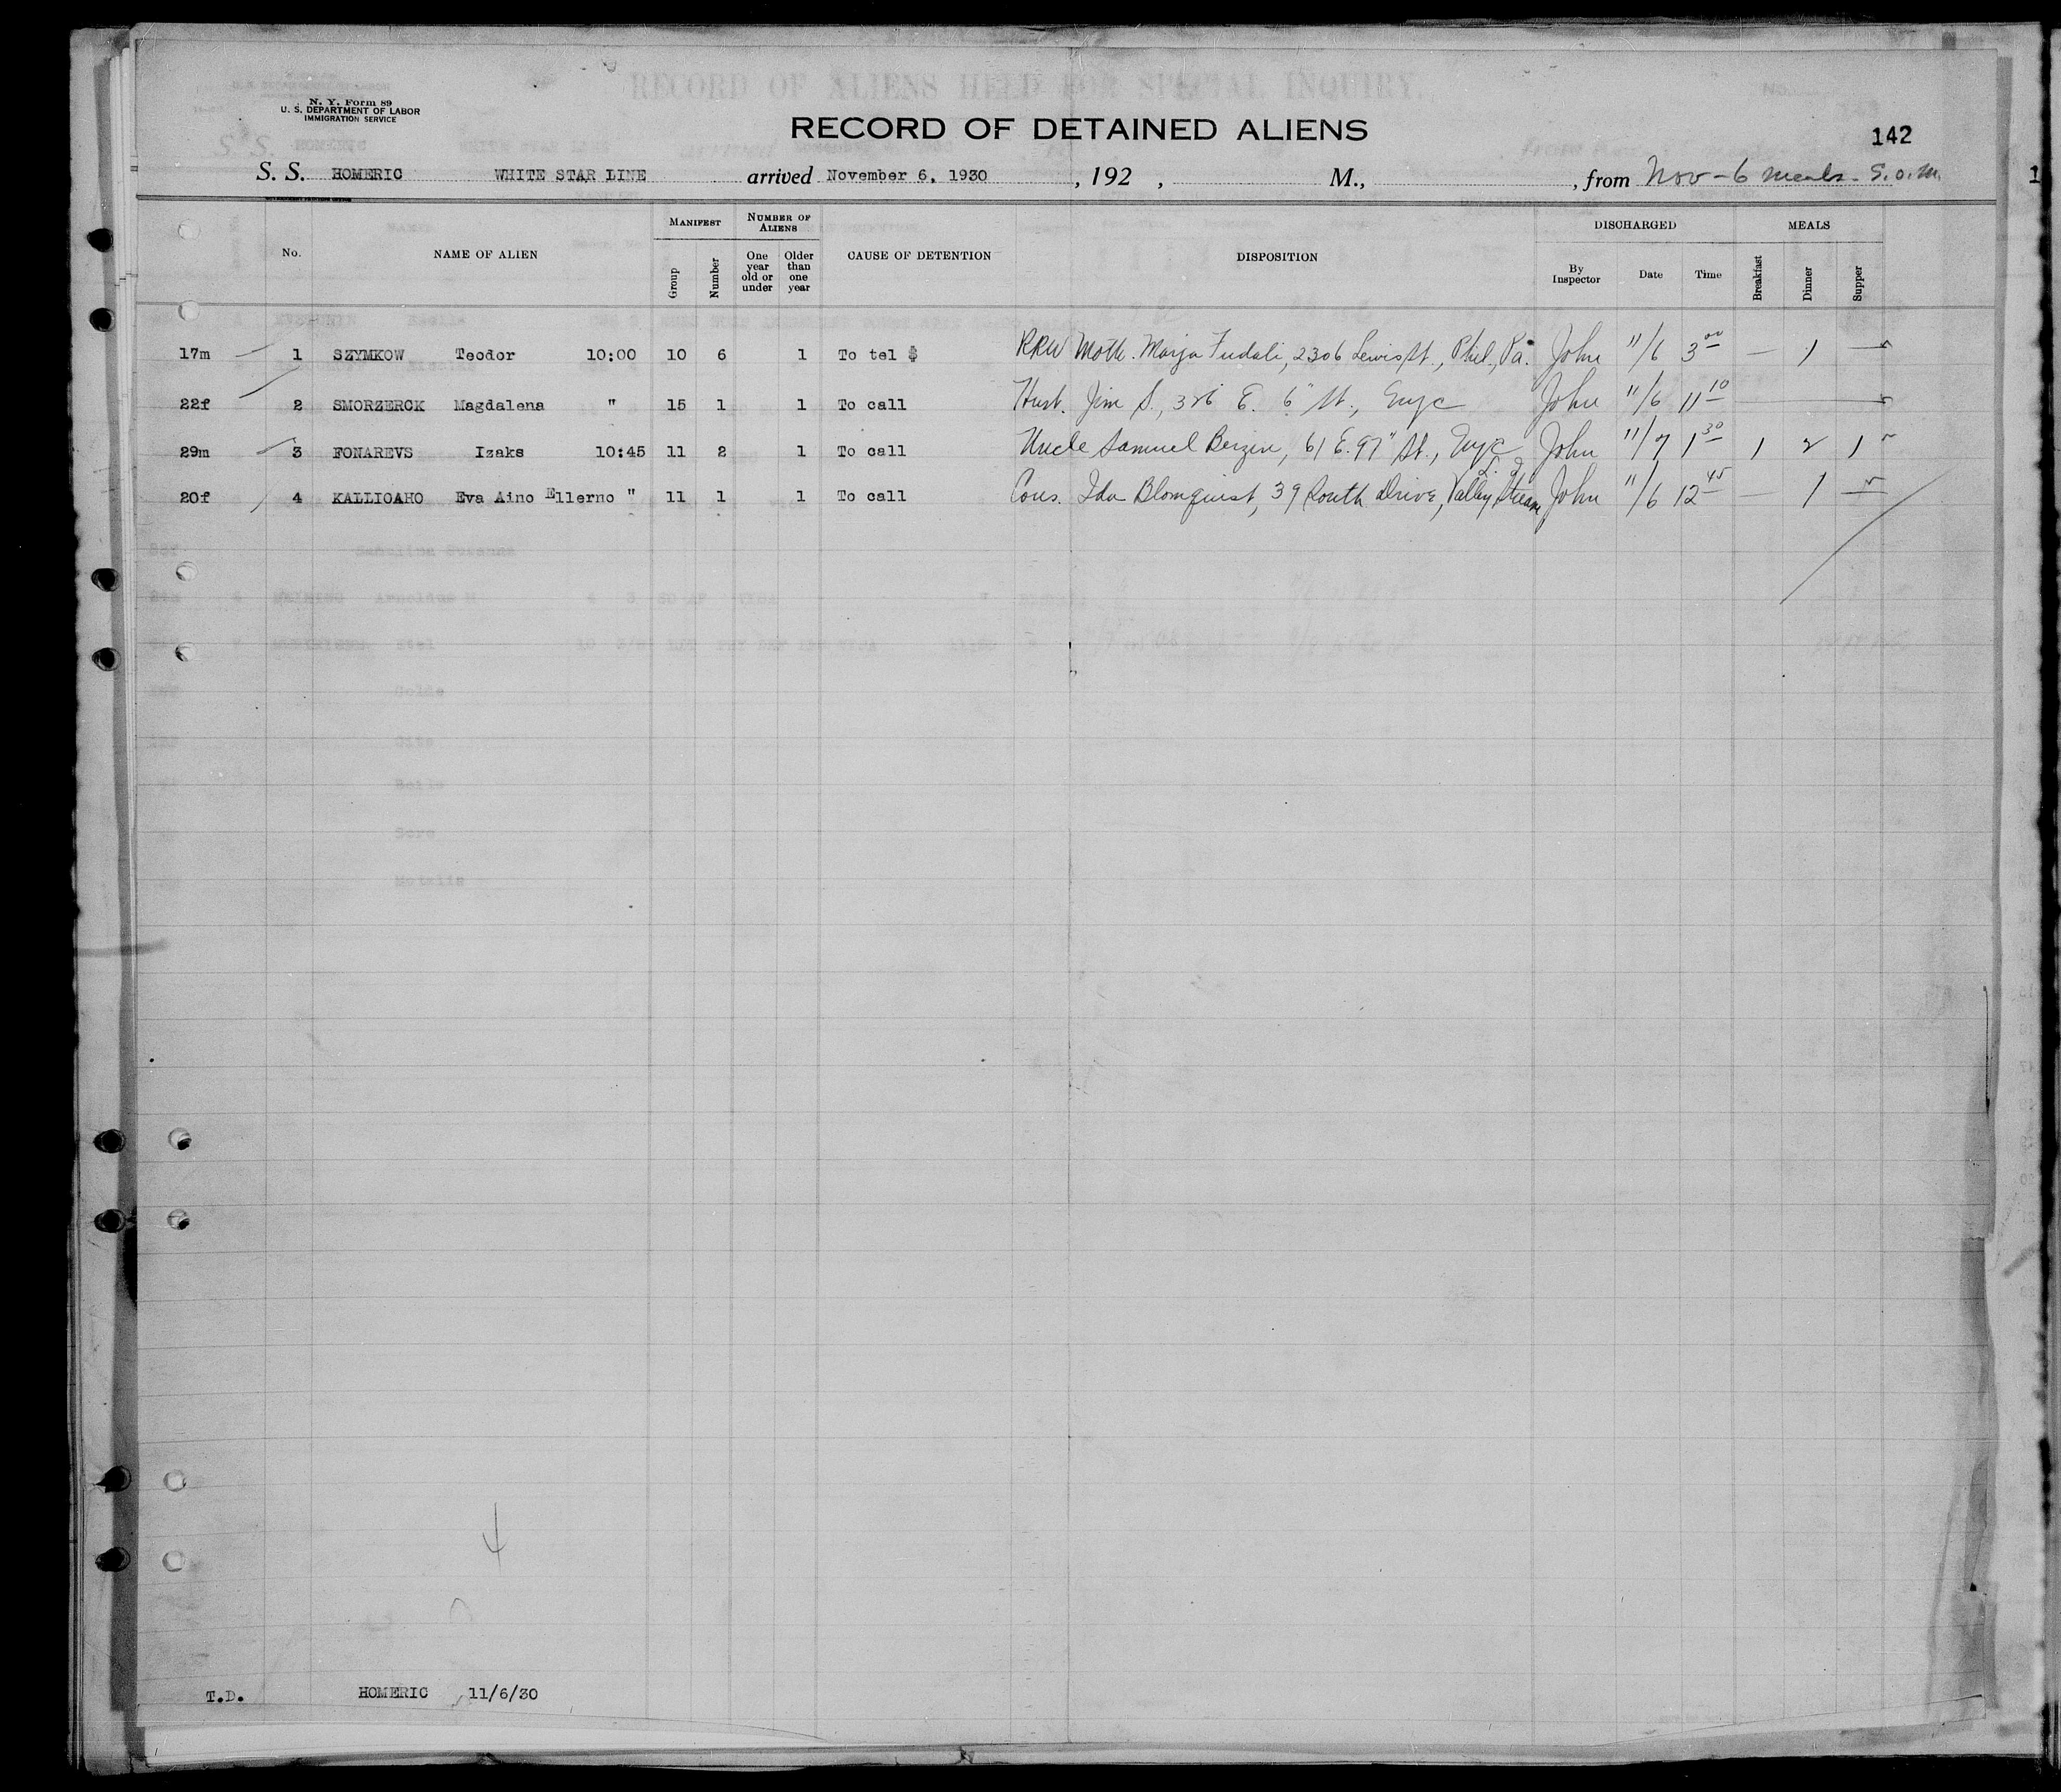 N. Y. Form 89
U. S. DEPARTMENT OF LABOR
IMMIGRATION SERVICE
RECORD OF ALIENS HELD FOR SPECIAL INQUIRY.
RECORD OF DETAINED ALIENS
142
S. S. HOMERIC WHITE STAR LINE arrived November 6, 1930 , 192 , M., , from Nov - 6 meals - S.O.M.
No. NAME OF ALIEN MANIFEST Group Number NUMBER OF ALIENS One year old or under Older than one year CAUSE OF DETENTION DISPOSITION DISCHARGED By Inspector Date Time MEALS Breakfast Dinner Supper
17m 1 SZYMKOW Teodor 10:00 10 6 1 To tel $ RRW Moth. Marja Fudali, 2306 Lewis St., Phil., Pa. John 11/6 3 00 — 1 —
22f 2 SMORZERCK Magdalena " 15 1 1 To call Husb. Jim S., 326 E. 6" St., Nyc John 11/6 11 10 — — —
29m 3 FONAREVS Izaks 10:45 11 2 1 To call Uncle Samuel Berzin, 61 E. 97" St., Nyc John 11/7 1 30 1 2 1
20f 4 KALLIOAHO Eva Aino Ellerno " 11 1 1 To call Cous. Ida Blomquist, 39 South Drive, Valley Stream L. I. John 11/6 12 45 — 1 —
4
T.D. HOMERIC 11/6/30